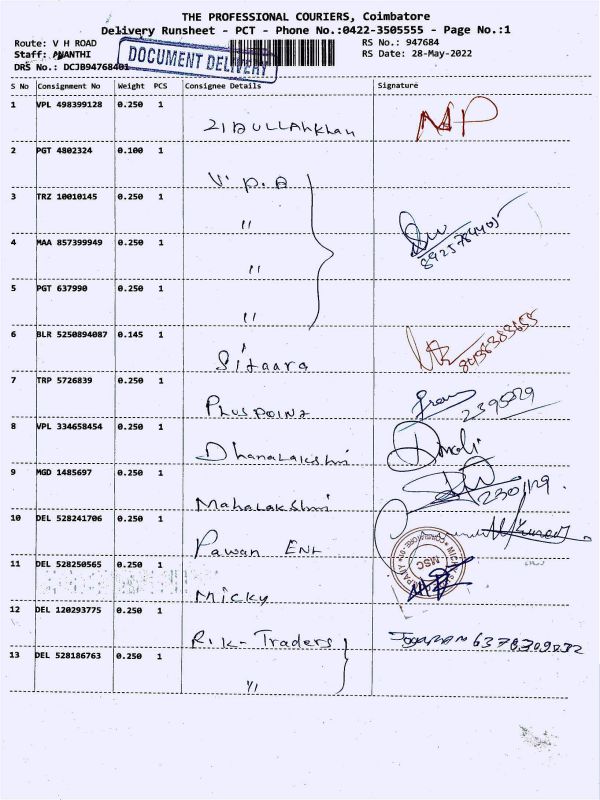 THE PROFESSIONAL COURIERS, Coimbatore
Delivery Runsheet - PCT - Phone No.:0422-3505555 - Page No.:1
Route: V H ROAD RS No.: 947684
Staff: ANANTHI RS Date: 28-May-2022
DRS No.: DCJB94768401
DOCUMENT DELIVERY
S No Consignment No Weight PCS Consignee Details Signature
1 VPL 498399128 0.250 1 ZIBULLAHKhan
2 PGT 4802324 0.100 1 V.P.A
3 TRZ 10010145 0.250 1 "
4 MAA 857399949 0.250 1 " 8925784405
5 PGT 637990 0.250 1 "
6 BLR 5250894087 0.145 1 Sitaara
7 TRP 5726839 0.250 1 PLUSPOINT 2395029
8 VPL 334658454 0.250 1 DhanaLakshmi
9 MGD 1485697 0.250 1 MahaLakshmi
10 DEL 528241706 0.250 1 Pawan Ent
11 DEL 528250565 0.250 1 Micky MSC
12 DEL 120293775 0.250 1 R.K-Traders
13 DEL 528186763 0.250 1 "